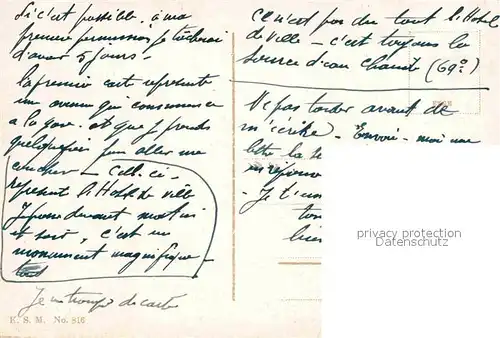 Si c'est possible, a ma
première permission je tâcherai
d'avoir 5 jours -
La première carte représente
un avenue qui commence
a la gare. et que je prends
quelquefois pour aller me
coucher - Celle-ci
représente l'Hotel de ville
Je passe devant matin
et soir, c'est un
monument magnifique -
tout
Je me trompe de carte
K. S. M. No. 816
Ce n'est pas du tout l'Hotel
de Ville - c'est toujours la
Source d'eau chaude (69°)
Ne pas tarder avant de
m'écrire - Envoie-moi une
Je t'
ton
bien
privacy protection
Datenschutz